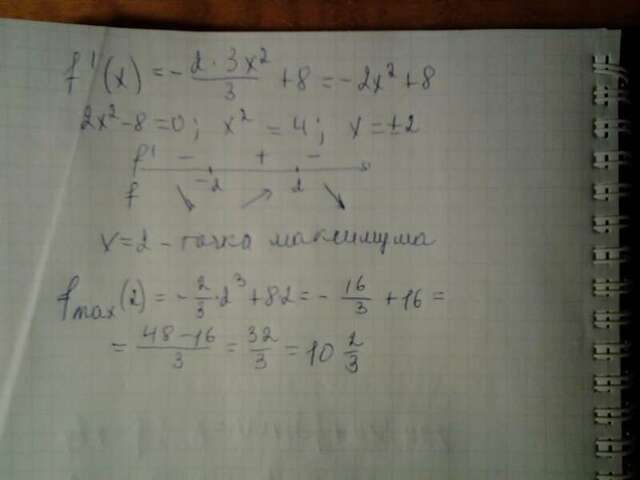 f'(x) = - 2·3x²/3 + 8 = -2x² + 8
2x² - 8 = 0; x² = 4; x = ±2
f' - + -
-2 2
f ↘ ↗ ↘
x = 2 - точка максимума
fmax(2) = - 2/3 · 2³ + 8·2 = - 16/3 + 16 =
= 48-16/3 = 32/3 = 10 2/3